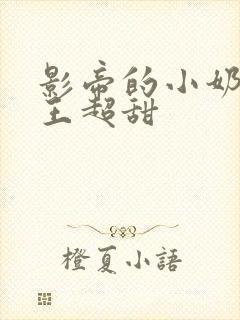 影帝的小奶
王超甜
橙夏小語